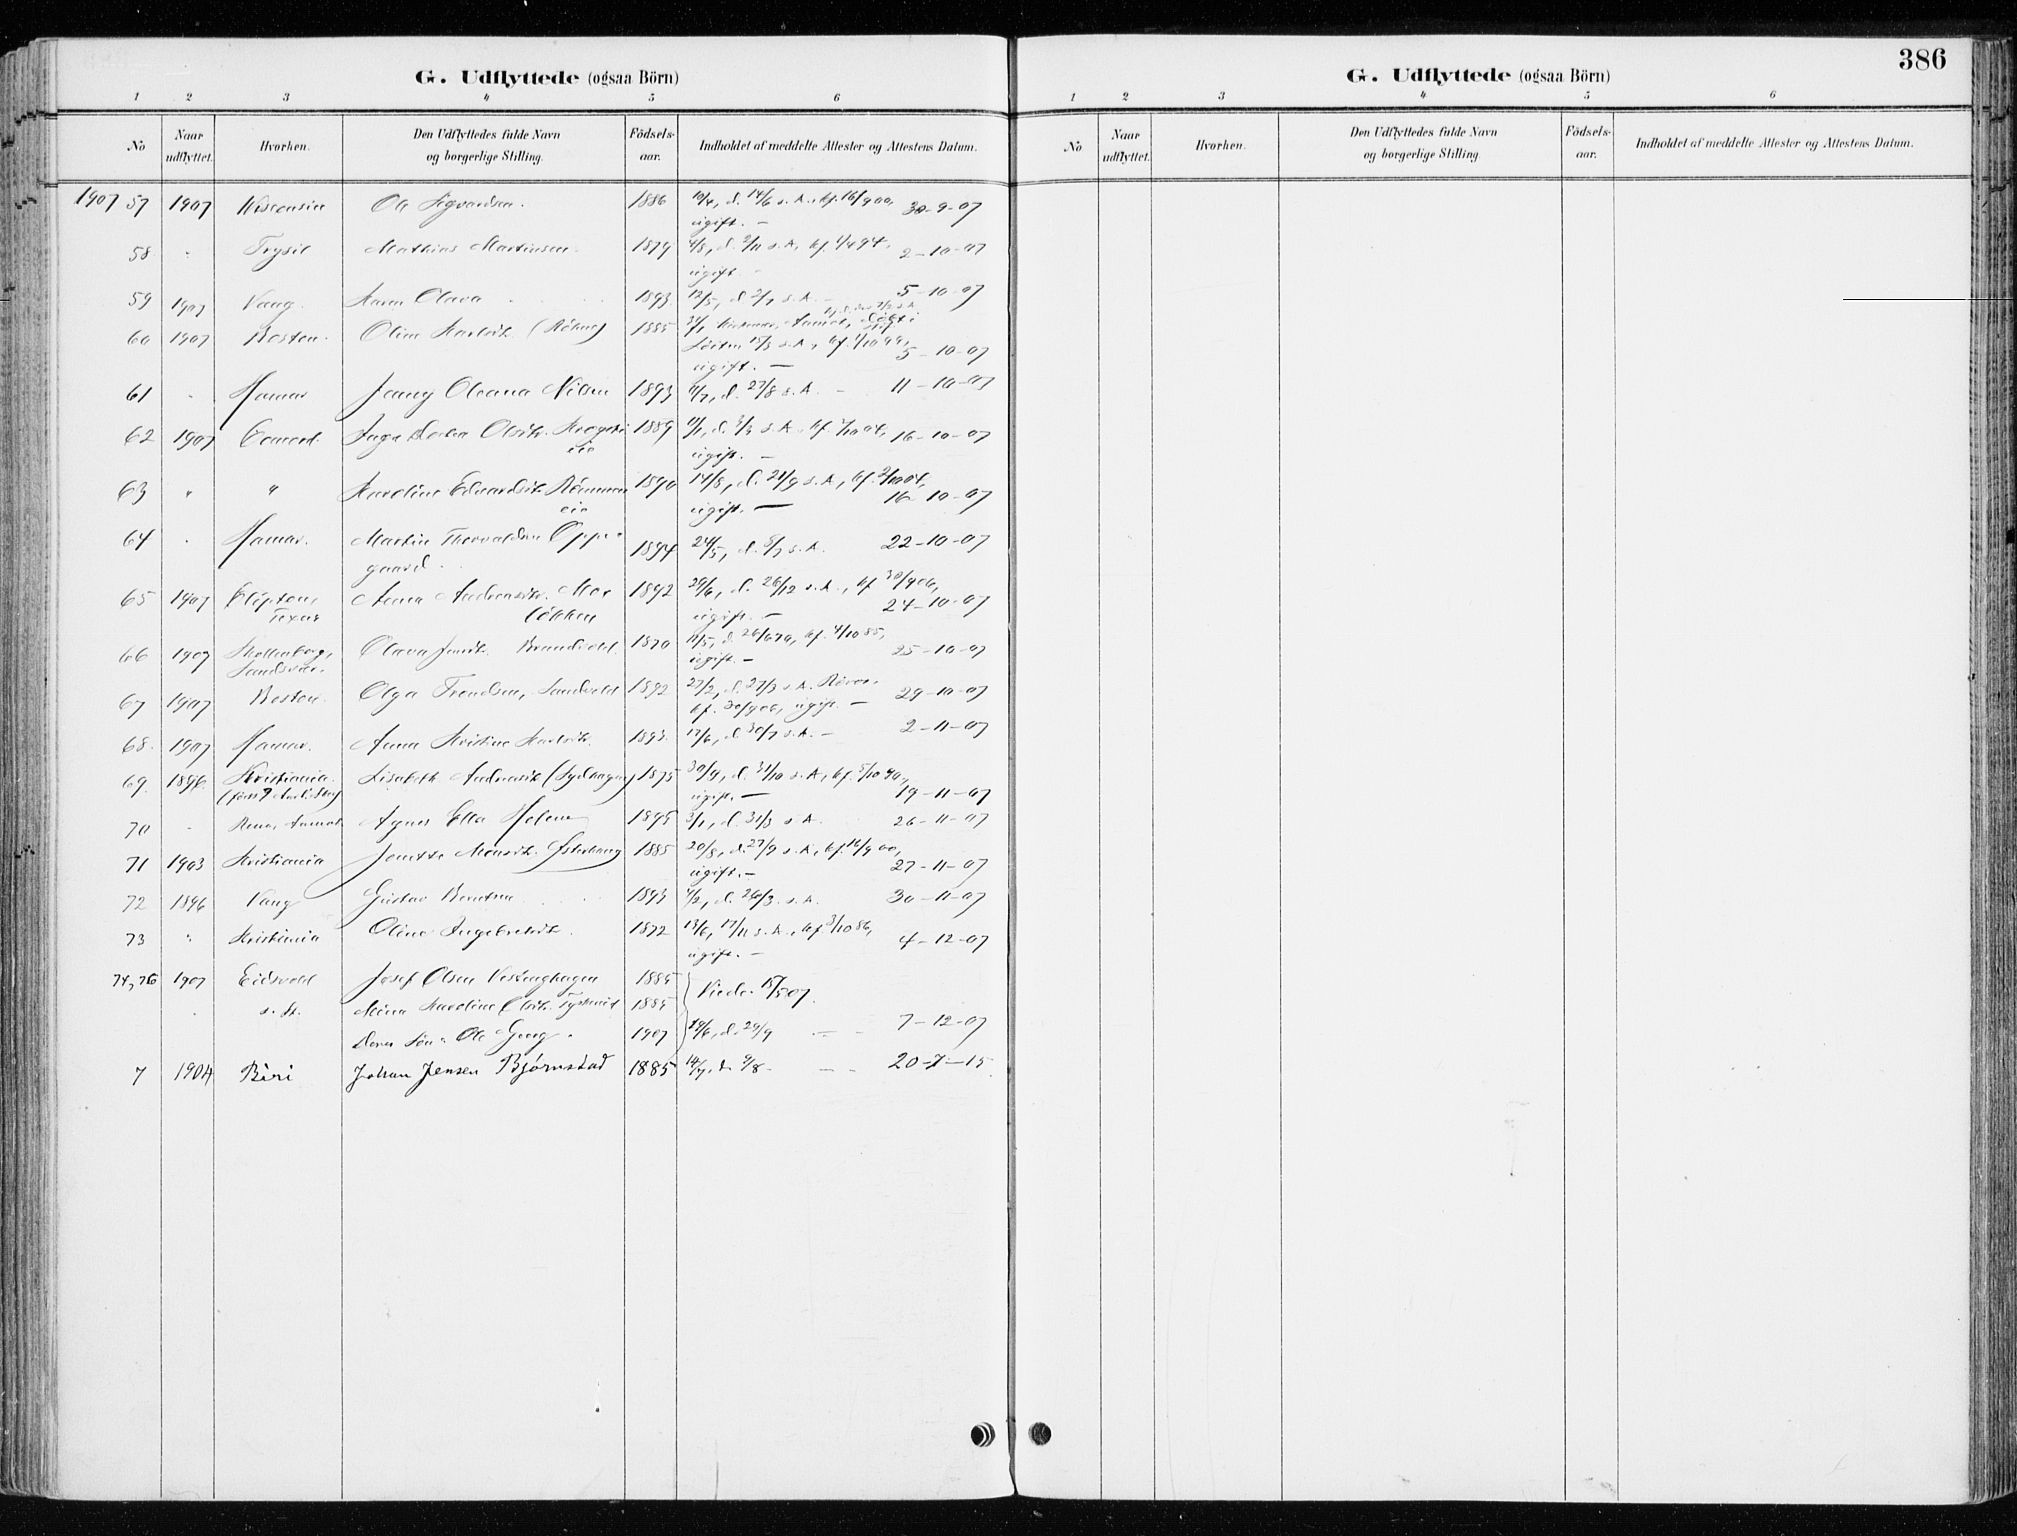 386
G. Udflyttede (ogsaa Börn)
1 2 3 4 5 6
No Naar udflyttet. Hvorhen. Den Udflyttedes fulde Navn og borgerlige Stilling. Födsels-aar. Indholdet af meddelte Attester og Attestens Datum.
1907 57 1907 Wisconsin Ole Sigvardsen. 1886 d. 14/6 s. A., kf. 16/9 00, 30-9-07
ugift. —
58 " Trysil Mathias Martinsen 1879 4/8, d. 2/11 s. A. kf. 2-10-07
ugift. —
59 1907 Vang Karen Olava 1893 12/5, d. 2/7 s. A. — 5-10-07
60 1907 Boston. Oline Karlsdt. 1885 5-10-07
ugift. —
61 " Hamar Jany Oleana Nilsen 1893 d. 27/8 s. A. — 11-10-07
62 1907 Inga Olsdt. 1889 s. A. kf. 16-10-07
eie ugift. —
63 " " Karoline Edvardsdt. 1890 14/8, d. 21/9 s. A., kf. 16-10-07
eie ugift. —
64 " Hamar. Martin Thorvaldsen Oppe-
gaard 1894 24/5, d. 8/7 s. A. 22-10-07
65 1907 Clifton, Anna Andreasdt. Mo- 1892 29/6, d. 26/12 s. A., kf 30/9 06,
Texas løkken ugift. — 24-10-07
66 1907 Olava Jensdt. Brandvold 1870 11/5, d. 26/6 70, kf. 4/10 85,
Sandsvær. ugift. — 25-10-07
67 1907 Boston. Olga Trondsen, Sandvold 1892 27/2, d. 27/3 s. A. Røros.
kf. 30/9 06, ugift. — 29-10-07
68. 1907 Hamar. Anna Kristine Karlsdt. 1893 17/6, d. 30/7 s. A. — 2-11-07
69. 1896 Kristiania. Lisabeth Andreasdt. (Sydhagen) 1875 30/9, d. 31/10 s. A., kf. 5/10 90,
ugift. — 19-11-07
70 " Rena, Aamot Agnes Ella Helene 1895 3/1, d. 31/3 s. A. 26-11-07
71 1903 Kristiania Jonette Monsdt. Østerhaug 1885 20/8, d. 27/9 s. A., kf. 16/9 00,
ugift. — 27-11-07
72 1896 Vang Gustav Berntsen 1893 4/2, d. 26/3 s. A. 30-11-07
73 " Kristiania Oline Ingebretsdt. 1872 13/6, 17/11 s. A., kf 3/10 86,
ugift. — 4-12-07
74, 76 1907 Eidsvold Josef Olsen Vestenghagen 1885
s. St. Mina Karoline Olsdt. 1885 Viede 15/5 07.
Deres Søn: Ole Georg. 1907 19/6, d. 29/9 — — 7-12-07
7 1904 Biri Johan Jensen Bjørnstad 1885 14/7, d. 9/8. — — 20-7-15.
G. Udflyttede (ogsaa Börn)
1 2 3 4 5 6
No Naar udflyttet. Hvorhen. Den Udflyttedes fulde Navn og borgerlige Stilling. Födsels-aar. Indholdet af meddelte Attester og Attestens Datum.